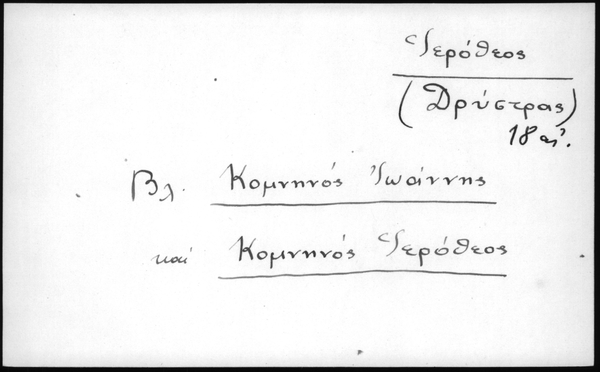 Ἱερόθεος
(Δρύστρας)
18 αἰ.
Βλ. Κομνηνός Ἰωάννης
καί Κομνηνός Ἱερόθεος